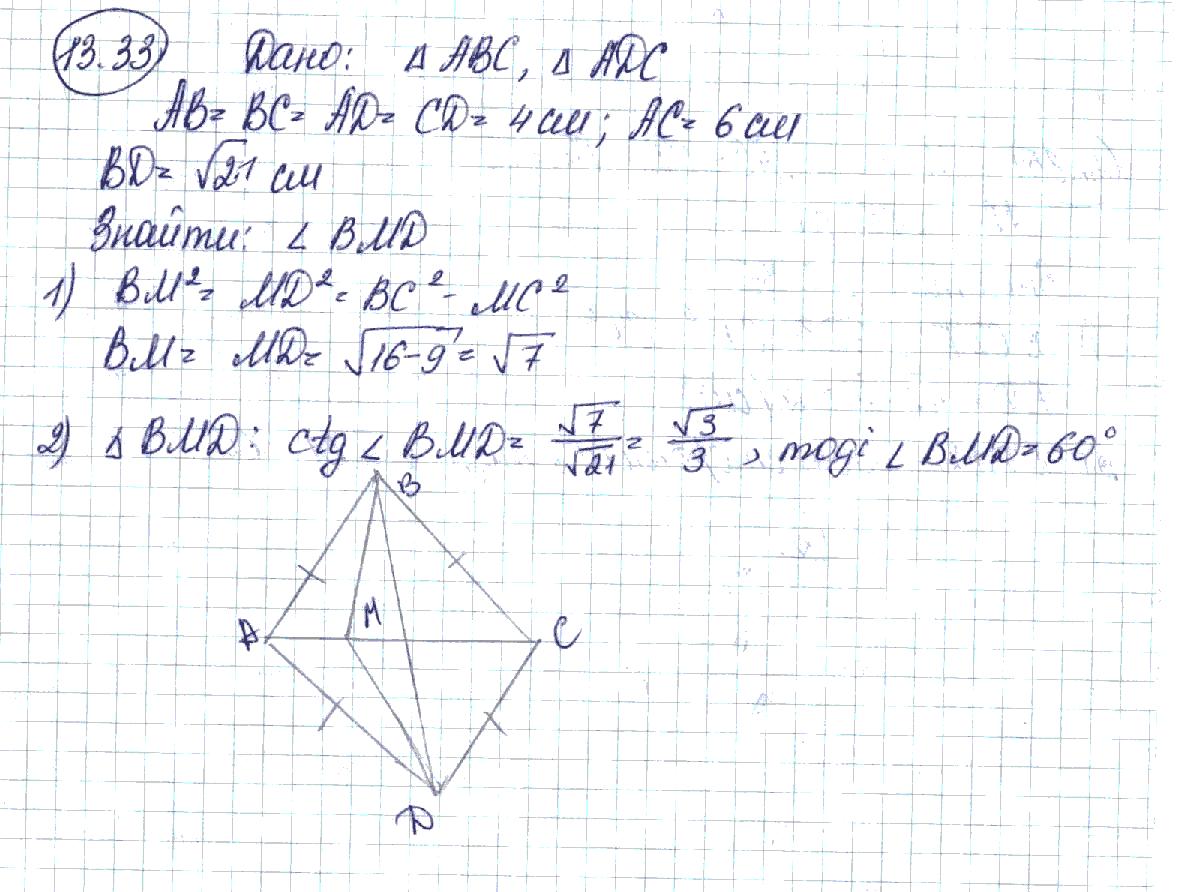 13.33 Дано: Δ ABC, Δ ADC
AB = BC = AD = CD = 4 см; AC = 6 см
BD = √21 см
Знайти: ∠ BMD
1) BM² = MD² = BC² - MC²
BM = MD = √16-9 = √7
2) Δ BMD: ctg ∠ BMD = √7/√21 = √3/3, тоді ∠ BMD = 60°
B
M
A
C
D